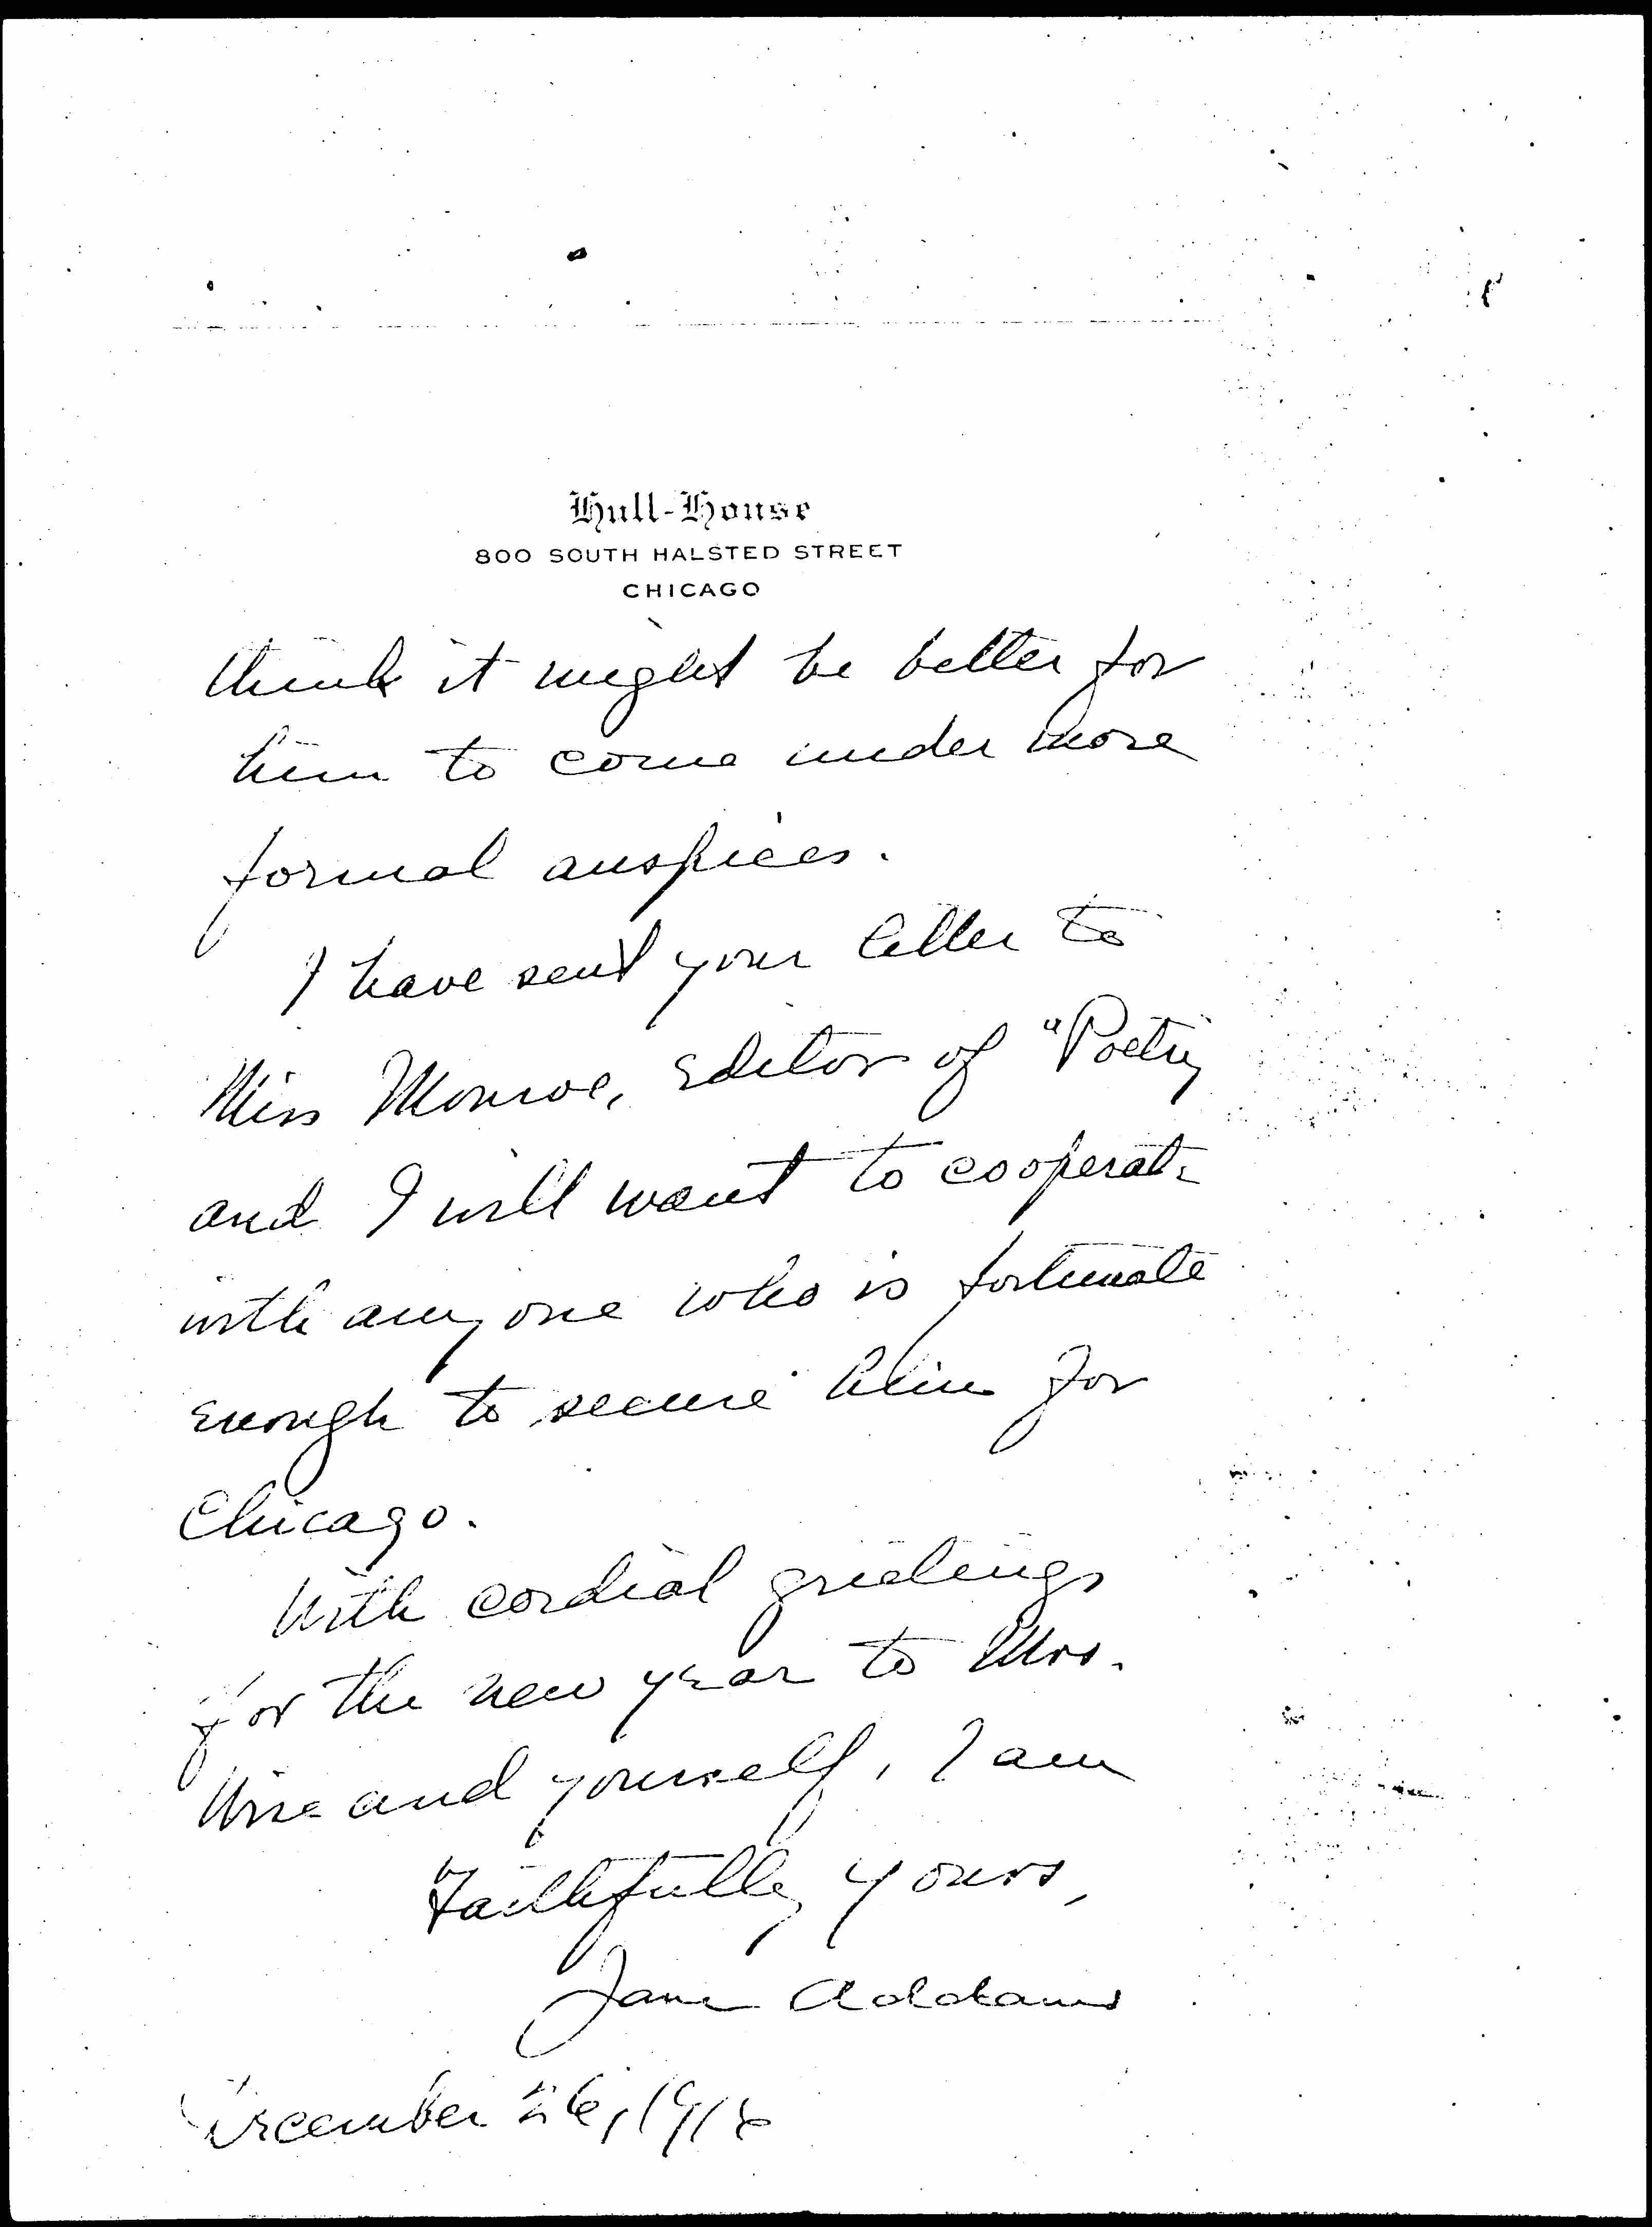 Hull-House
800 SOUTH HALSTED STREET
CHICAGO
think it might be better for
him to come under more
formal auspices.
I have sent your letter to
Miss Monroe, Editor of "Poetry"
and I will want to cooperate
with any one who is fortunate
enough to secure him for
Chicago.
With cordial greetings
for the new year to Mrs.
Wise and yourself, I am
Faithfully yours,
Jane Addams
December 26,